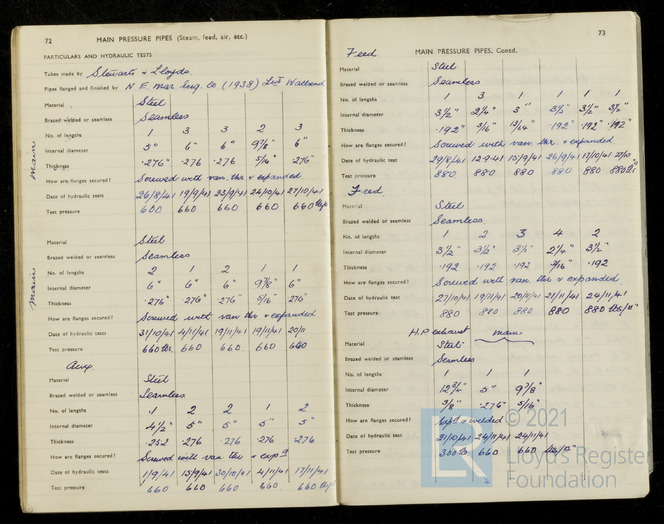 72 MAIN PRESSURE PIPES (Steam, feed, air, etc.)
PARTICULARS AND HYDRAULIC TESTS
Tubes made by Stewarts & Lloyds
Pipes flanged and finished by N E Mar Eng. Co (1938) Ltd Wallsend
Main
Material Steel
Brazed welded or seamless Seamless
No. of lengths 1 3 3 2 3
Internal diameter 5" 6" 6" 9 7/8" 6"
Thickness .276" .276 .276 5/16" .276"
How are flanges secured? Screwed with van. thr & expanded
Date of hydraulic tests 26/8/41 19/9/41 22/9/41 24/10/41 27/10/41
Test pressure 660 660 660 660 660 lbs/□"
Main
Material Steel
Brazed welded or seamless Seamless
No. of lengths 2 1 2 1 1
Internal diameter 6" 6" 6" 9 7/8" 6"
Thickness .276" .276" .276" 5/16" .276"
How are flanges secured? Screwed with van thr & expanded
Date of hydraulic tests 31/10/41 4/11/41 19/11/41 19/11/41 20/11
Test pressure 660 lbs. 660 660 660 660
Aux.
Material Steel
Brazed welded or seamless Seamless
No. of lengths 1 2 2 1 2
Internal diameter 4 1/2" 5" 5" 5" 5"
Thickness .252 .276 .276 .276 .276
How are flanges secured? Screwed with van thr & exp d
Date of hydraulic tests 1/9/41 15/9/41 30/10/41 4/11/41 17/11/41
Test pressure 660 660 660 660 660 lbs/□"
73
Feed MAIN PRESSURE PIPES, Contd.
Material Steel
Brazed welded or seamless Seamless
No. of lengths 1 3 1 1 1 1
Internal diameter 3 1/2" 2 1/4" 3" 3 1/2" 3 1/2" 3 1/2"
Thickness .192" 3/16" 13/64" .192" .192" .192"
How are flanges secured? Screwed with van. thr. & expanded
Date of hydraulic test 29/8/41 12.9.41 15/9/41 26/9/41 17/10/41 22/10
Test pressure 880 880 880 880 880 880 lbs/□"
Feed.
Material Steel
Brazed welded or seamless Seamless.
No. of lengths 1 2 3 4 2
Internal diameter 3 1/2" 3 1/2" 3 1/2" 2 1/4" 3 1/2"
Thickness .192 .192 .192 3/16" .192
How are flanges secured? Screwed with van thr & expanded
Date of hydraulic test 27/10/41 19/11/41 20/11/41 21/11/41 24/11/41
Test pressure 880 880 880 880 880 lbs/□"
H.P. exhaust main
Material Steel
Brazed welded or seamless Seamless
No. of lengths 1 1 1
Internal diameter 12 3/4" 5" 9 7/8"
Thickness 3/8" .276" 5/16"
How are flanges secured? & welded
Date of hydraulic test 21/10/41 24/11/41 24/11/41
Test pressure 300 lb 660 660 lbs/□"
© 2021
LR
Lloyd's Register
Foundation